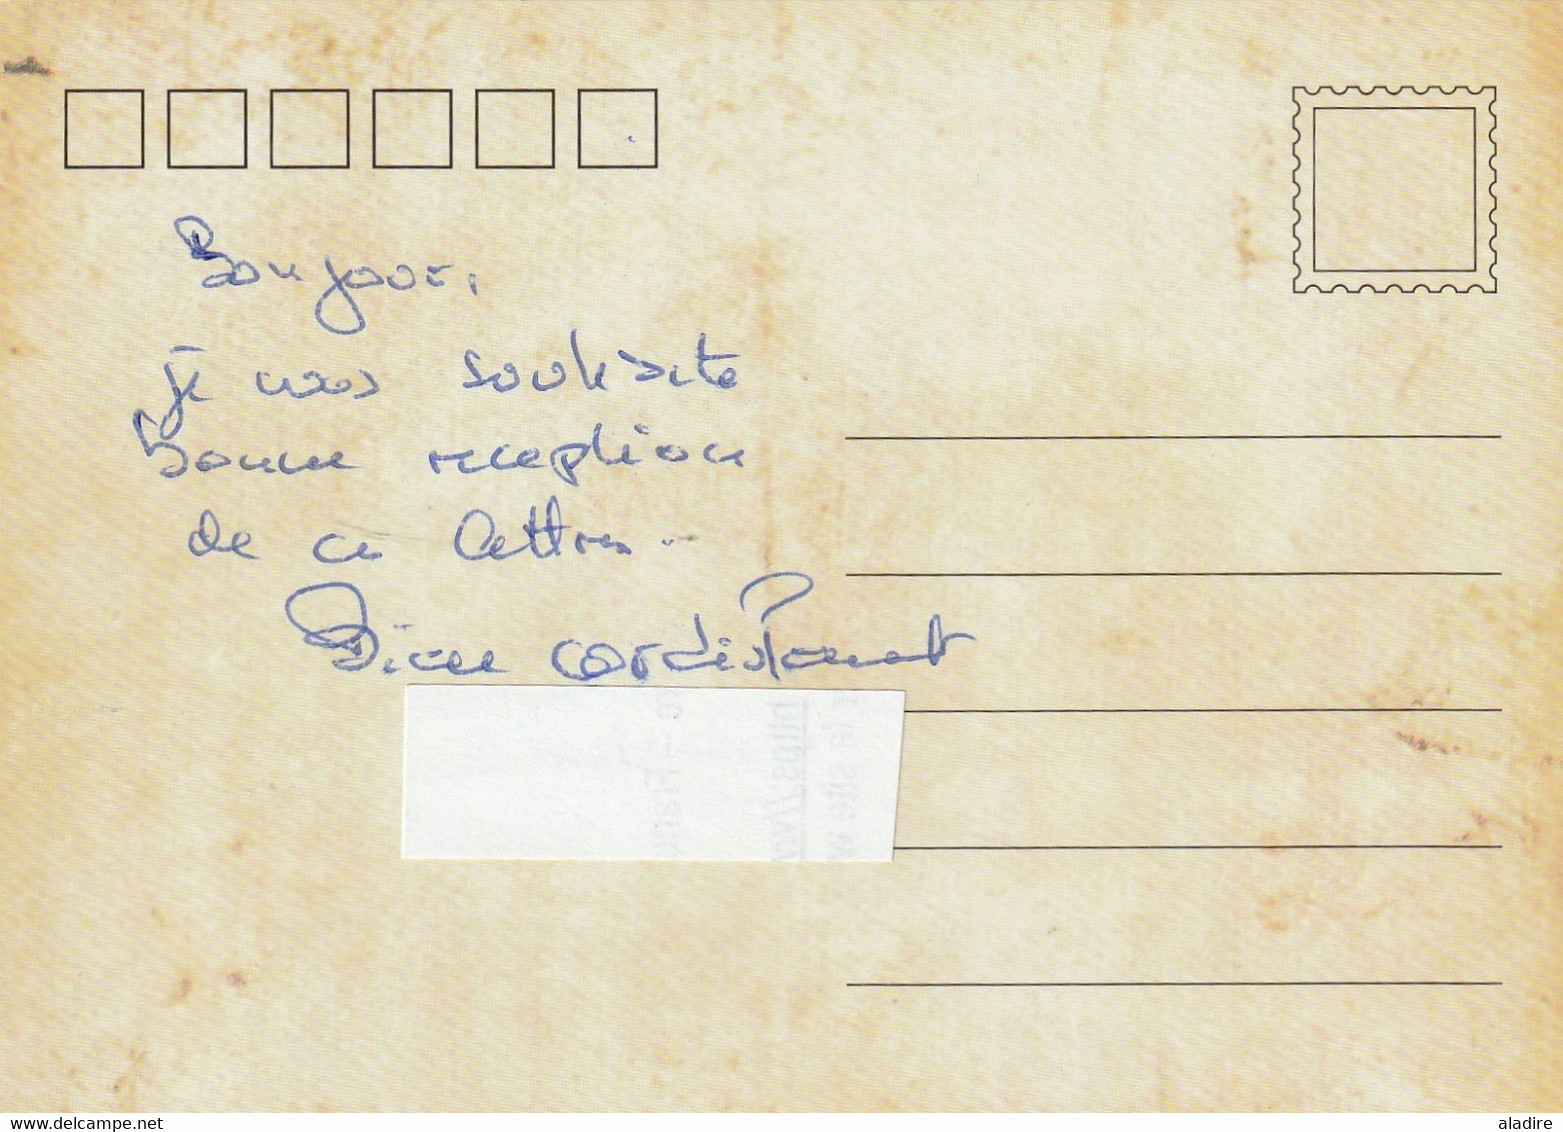 Bonjour,
je vous souhaite
bonne reception
de ces lettres.
Bien cordialement
https://w
le site w
delcampe.net
aladire